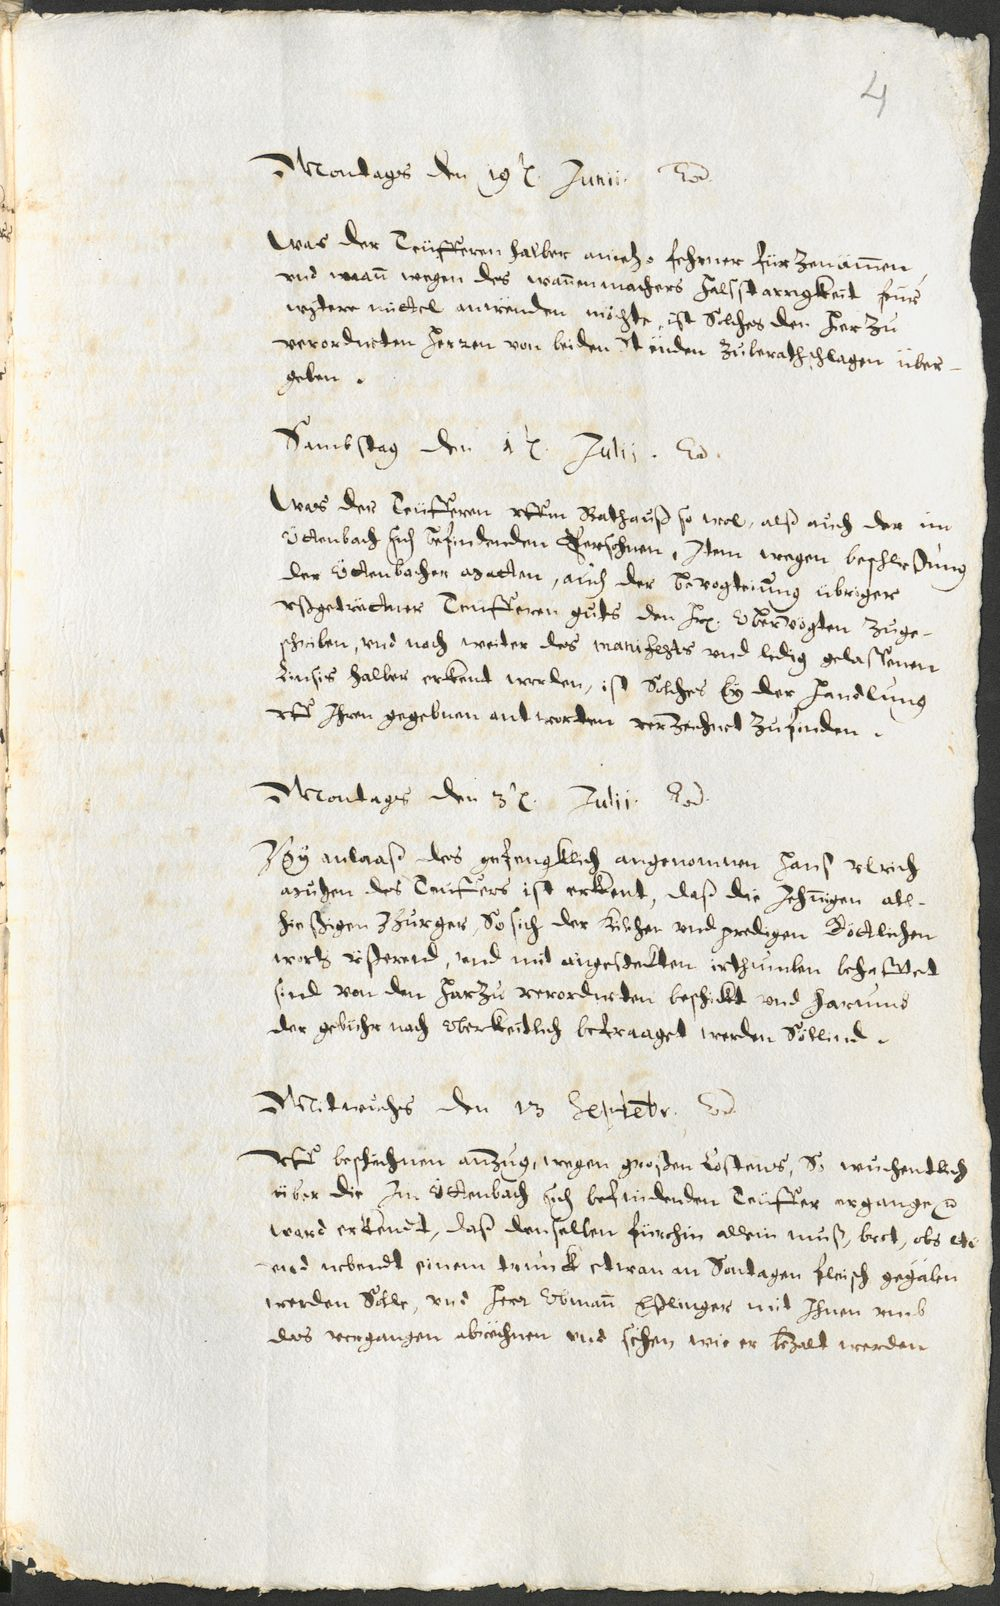 4
Montags den 19t. Junii. Eod.
Was der Teüfferen halber anietzo fehrner für zenämmen,
vnd mañ wegen des wannenmachers halsstarrigkeit für
wytere mittel anwenden möchte, ist Solches den Hierzu
verordneten Herren von beiden Stenden zuberathschlagen über-
geben.
Sambstag den 1t. Julii. Eod.
Was der Teüfferen vffm Rathauß so wol, alß auch der im
Ötenbach sich befindenden Persohnen, Item wegen beschließung
der Ötenbacher matten, auch der bevogteiung übriger
vßgeträttner Teüfferen guts den Hrn. Obervögten zuge-
schriben, vnd noch weiter des manifests vnd ledig gelaßenen
halber erkent worden, ist Solches by der Handlung
vff Ihren gegebnen antworten verzeichnet zufinden.
Montags den 3t. Julii. Eod.
By anlaaß des gefengklich angenomnen Hans Vlrich
des Teüffers ist erkent, daß die Jehnigen all-
hießigen Burger, So sich der kilchen vnd predigen Göttlichen
worts üßerend, vnd mit angesteckten irthumben behafftet
sind von den Harzu verordneten beschickt vnd harumb
der gebühr nach Oberkeitlich befraaget werden Söllind.
Mitwuchs den 13 Septebr. Eod.
Vff beschechnen anzug, wegen großen Costens, So wuchentlich
über die Im Ötenbach sich befindenden Teüffer ergangen
ward erkendt, daß denselben fürhin allein muß, brot, obs etc
vnd nebendt einem trunck etwan an Sontagen fleisch gegäben
werden Sölle, vnd Herr Obmañ Eßlinger mit Ihnen vmb
das vergangen abrechnen vnd sehen wie er bezalt werden